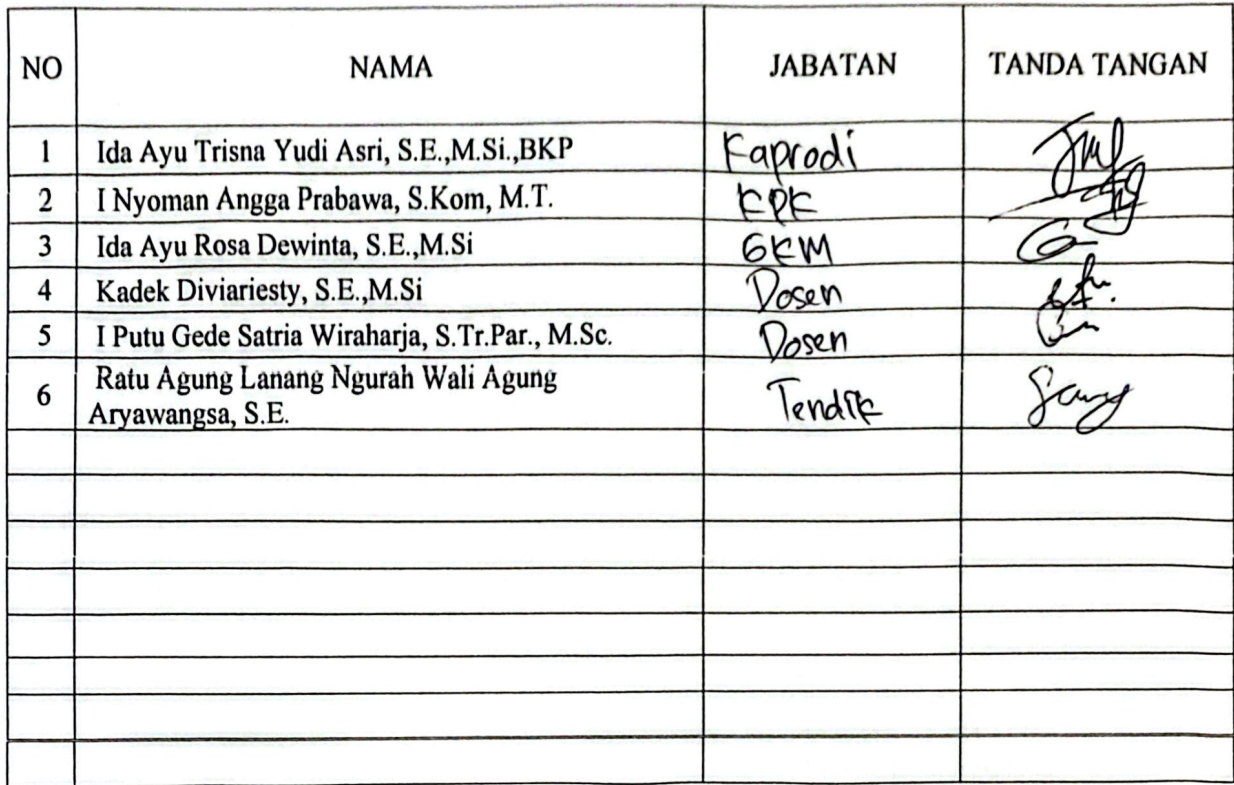 NO NAMA JABATAN TANDA TANGAN
1 Ida Ayu Trisna Yudi Asri, S.E.,M.Si.,BKP Kaprodi
2 I Nyoman Angga Prabawa, S.Kom, M.T. KPK
3 Ida Ayu Rosa Dewinta, S.E.,M.Si GKM
4 Kadek Diviariesty, S.E.,M.Si Dosen
5 I Putu Gede Satria Wiraharja, S.Tr.Par., M.Sc. Dosen
6 Ratu Agung Lanang Ngurah Wali Agung
Aryawangsa, S.E. Tendik